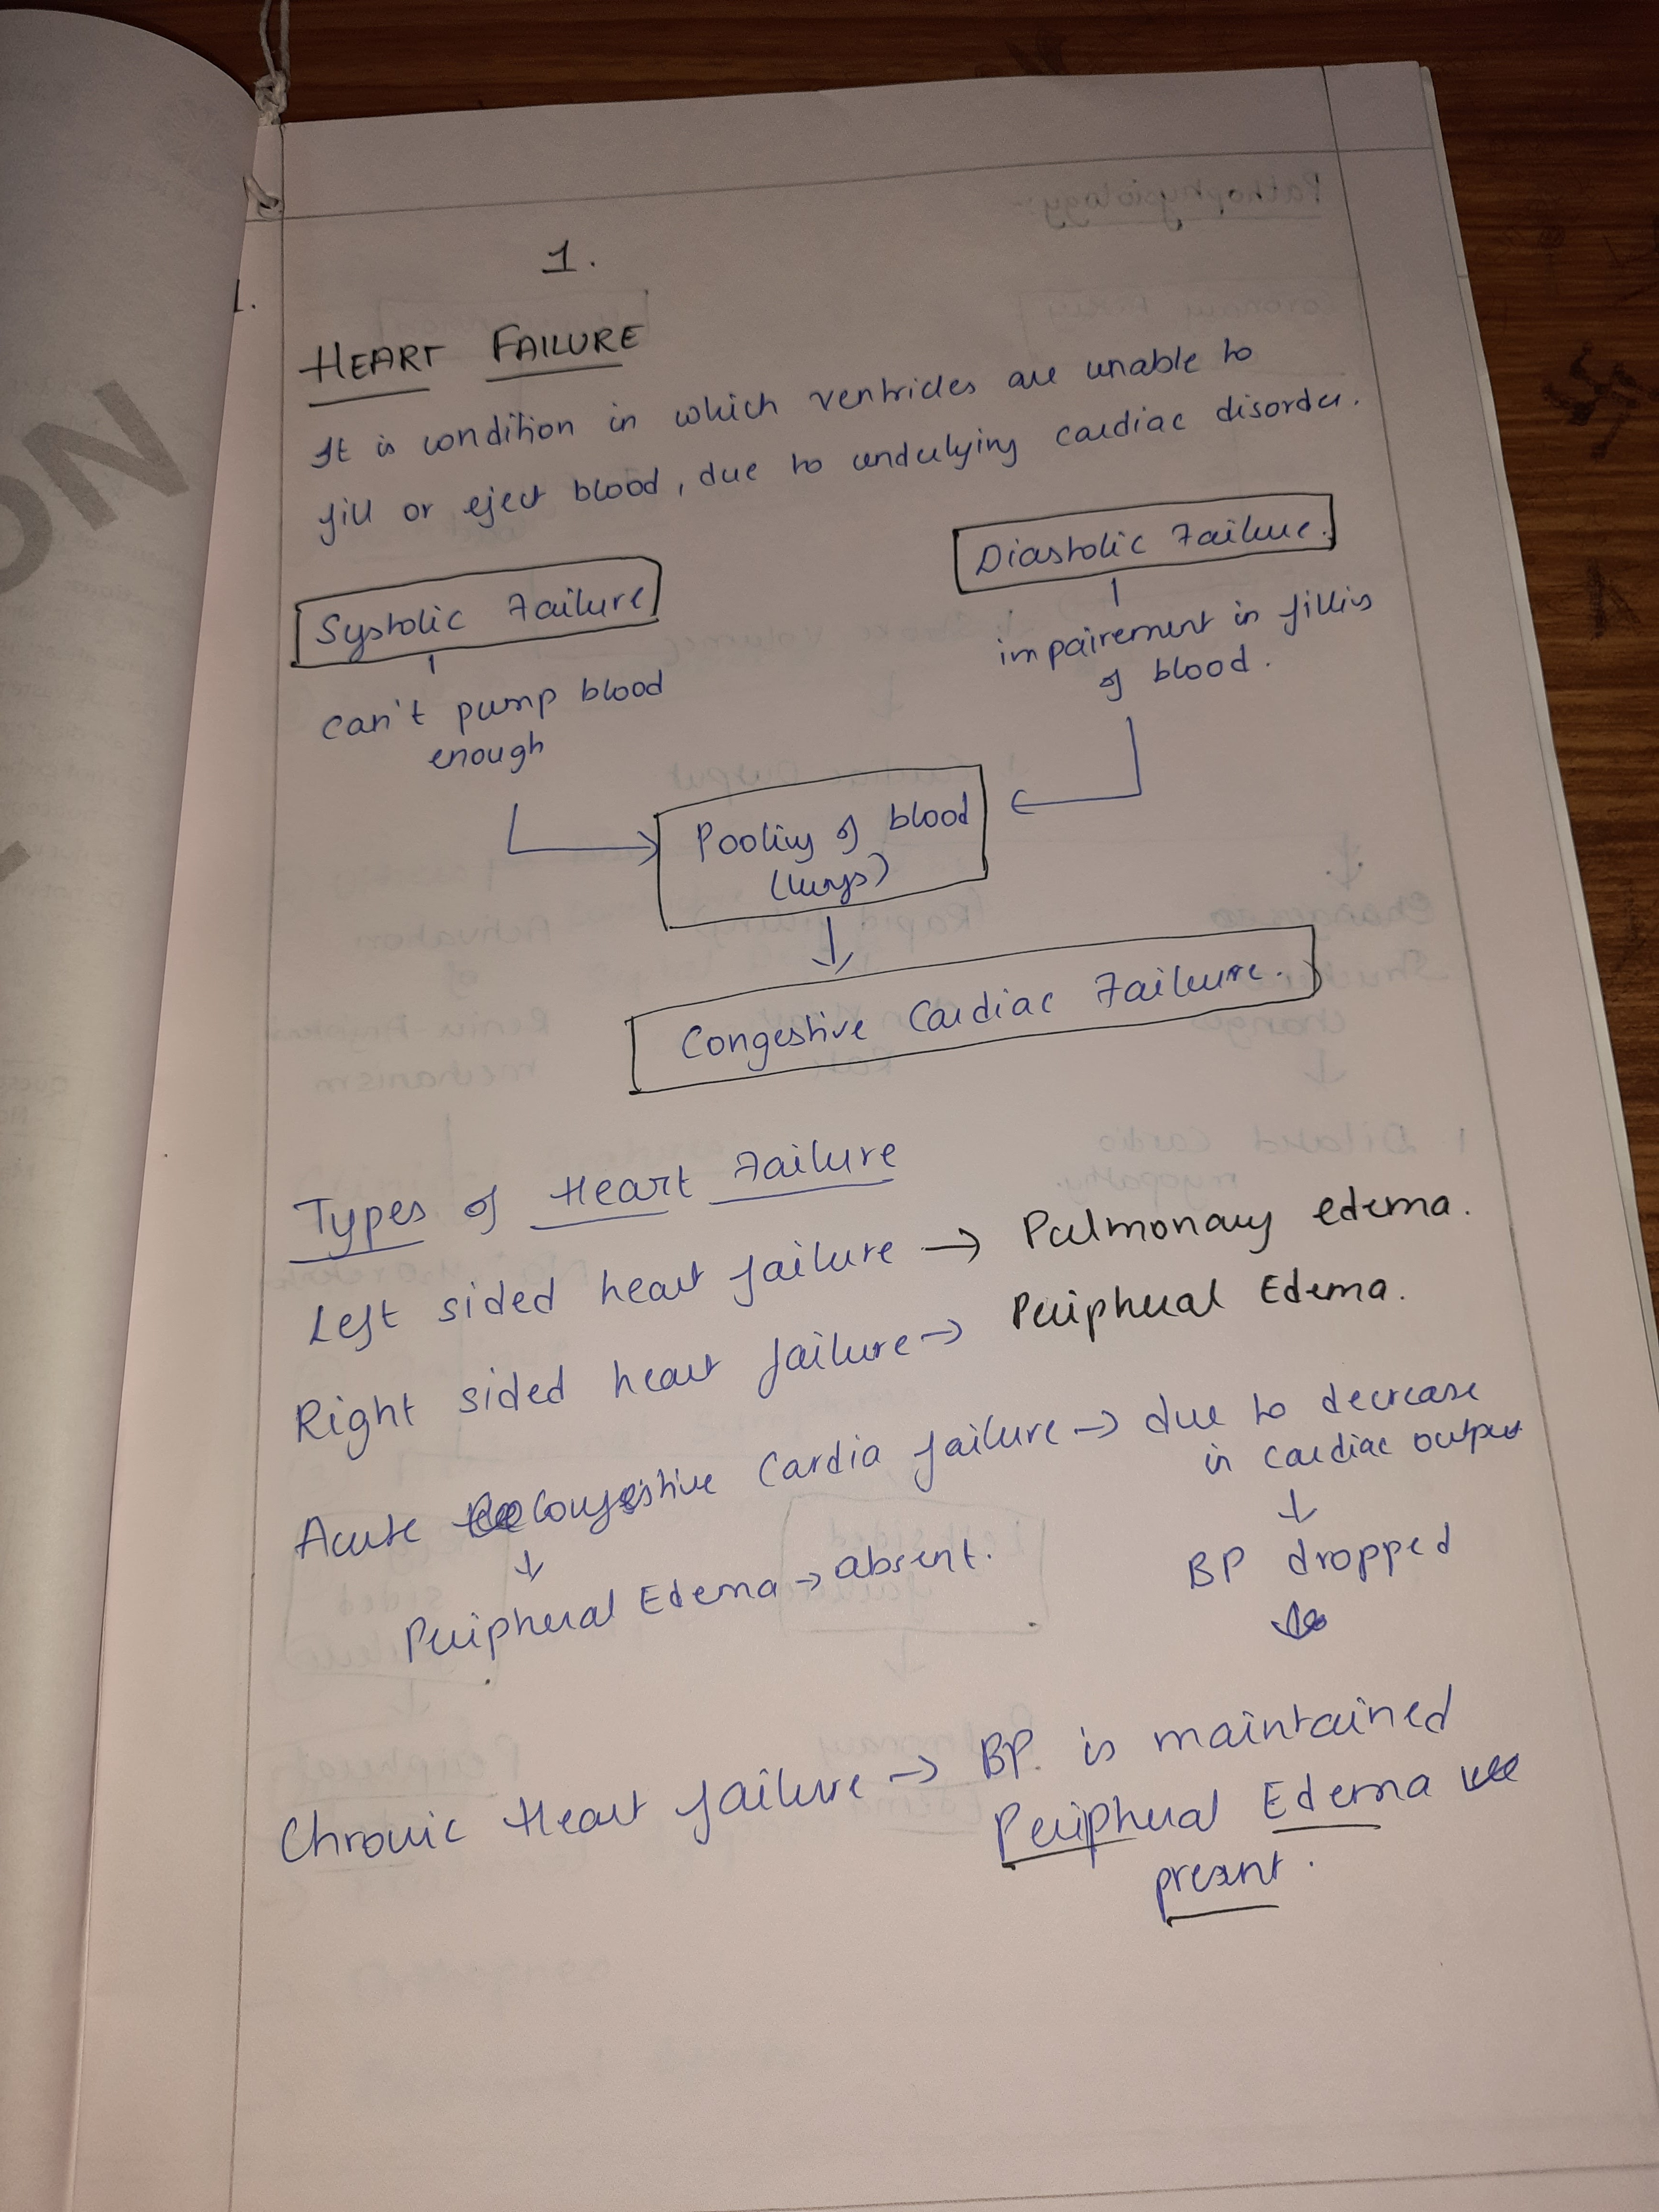 1.
1.
HEART FAILURE
It is condition in which ventricles are unable to
fill or eject blood, due to underlying cardiac disorder.
Systolic Failure
Diastolic Failure.
can't pump blood
enough
impairement in filling
of blood.
Pooling of blood
(lungs)
Congestive Cardiac Failure.
Types of Heart Failure
Left sided heart failure → Pulmonary edema.
Right sided heart failure → Peripheral Edema.
Acute Congestive Cardia failure → due to decrease
in cardiac output
↓
BP dropped
↓
Peripheral Edema → absent.
Chronic Heart failure → BP. is maintained
Peripheral Edema
present.
ON